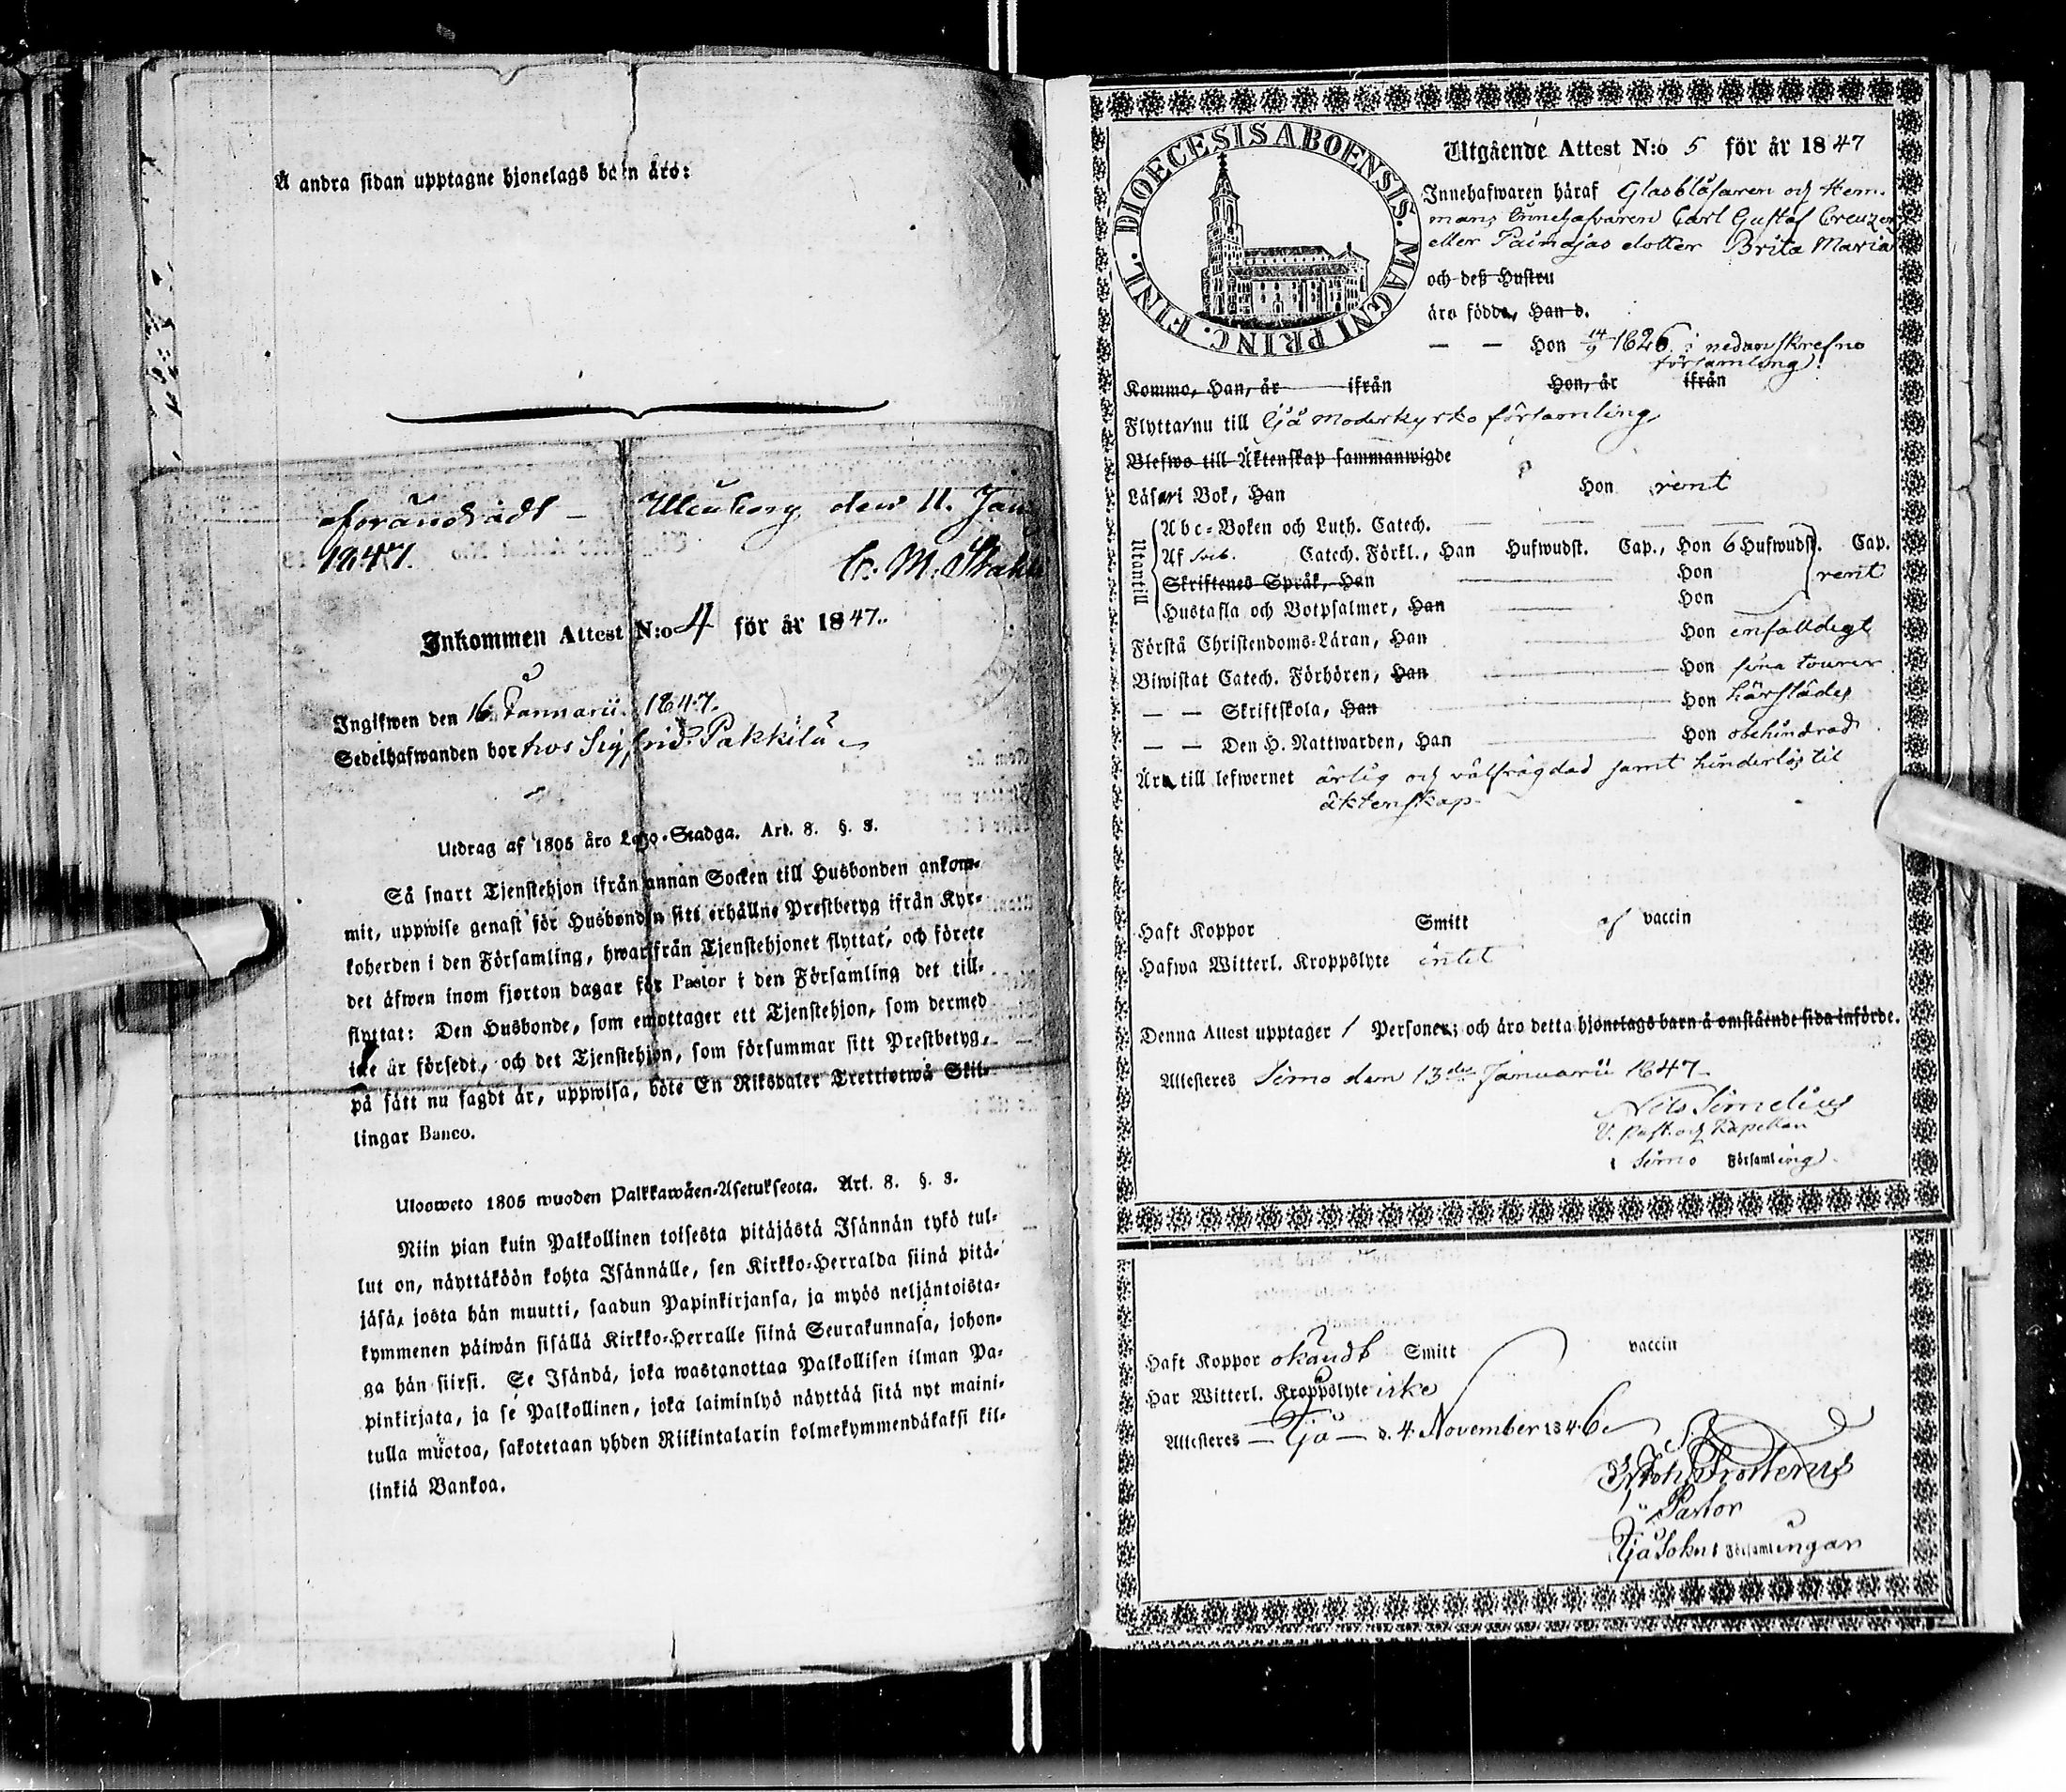 Å andra sidan upptagne hjonelags barn äro:
oförändradt – Uleåborg den 11. Jan.
1847.
Inkommen Attest N:o 4 för år 1847.
Ingifwen den 16 Januarii 1847.
Sedelhafwanden bor hos Sigfrid Pakkila
Utdrag af 1805 års Lego-Stadga. Art. 8. §. 3.
Så snart Tjenstehjon ifrån annan Socken till Husbonden ankom-
mit, uppwise genast för Husbonden sitt erhållne Prestbetyg ifrån Kyr-
koherden i den Församling, hwarifrån Tjenstehjonet flyttat, och förete
det äfwen inom fjorton dagar för Pastor i den Församling det till-
flyttat: Den Husbonde, som emottager ett Tjenstehjon, som dermed
icke är försedt, och det Tjenstehjon, som försummar sitt Prestbetyg,
på sätt nu sagdt är, uppwisa, böte En Riksdaler Trettiotwå Skil-
lingar Banco.
Uloosweto 1805 wuoden Palkkawäen-Asetuksesta. Art. 8. §. 3.
Niin pian kuin Palkollinen toisesta pitäjästä Isännän tykö tul-
lut on, näyttäköön kohta Isännälle, sen Kirkko-Herralda siinä pitä-
jäsä, josta hän muutti, saadun Papinkirjansa, ja myös neljäntoista-
kymmenen päiwän sisällä Kirkko-Herralle siinä Seurakunnasa, johon-
ga hän siirsi. Se Isändä, joka wastanottaa Palkollisen ilman Pa-
pinkirjata, ja se Palkollinen, joka laiminlyö näyttää sitä nyt maini-
tulla muotoa, sakotetaan yhden Riikintalarin kolmekymmendäkaksi kil-
linkiä Bankoa.
DIOECESIS ABOENSIS. MAGNI PRINC. FINL.
Utgående Attest N:o 5 för år 1847
Innehafwaren häraf Glasblåsaren och Hem-
mans Innehafvaren Carl Gustaf Creuzers
eller Painajas dotter Brita Maria
och deß Hustru
äro födde, Han d.
— — Hon 14/9 1826 i nedanskrefne
församling.
Kommo, Han, år ifrån Hon, år ifrån
Flyttar nu till Ijå Moderkyrko församling
Blefwo till Äktenskap sammanwigde
Läser i Bok, Han Hon rent
Utantill
Abc-Boken och Luth. Catech.
Af Sveb. Catech. Förkl., Han Hufwudst. Cap., Hon 6 Hufwudst. Cap.
Skriftenes Språk, Han Hon rent
Hustafla och Botpsalmer, Han Hon
Förstå Christendoms-Läran, Han Hon enfaldigt
Biwistat Catech. Förhören, Han Hon sina tourer
— — Skriftskola, Han Hon härstädes
— — Den H. Nattwarden, Han Hon obehindrad
Äro till lefwernet ärlig och välfrägdad samt hinderlös til
äktenskap.
Haft Koppor Smitt af vaccin
Hafwa Witterl. Kroppslyte intet
Denna Attest upptager 1 Personer; och äro detta hjonelags barn å omstående sida införde.
Attesteres Simo den 13de Januarii 1847.
Nils Simelius
V. Past. och Kapellan
i Simo Församling.
Haft Koppor okändt Smitt vaccin
Har Witterl. Kroppslyte icke
Attesteres — Ijå — d. 4 November 1846
Pastor
Ijå Sokns Församlingar